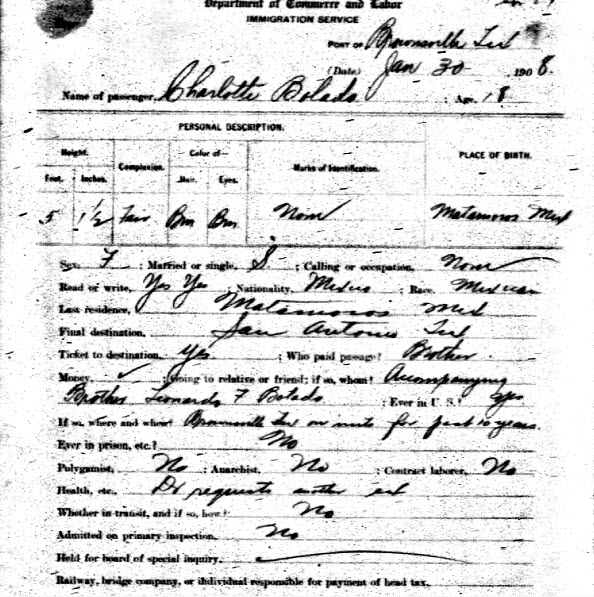 Department of Commerce and Labor
IMMIGRATION SERVICE
PORT OF Brownsville Tex
(Date) Jan 30 1908.
Name of passenger, Charlotte Bolado ; Age, 18
PERSONAL DESCRIPTION.
Height. Complexion. Color of— Marks of Identification. PLACE OF BIRTH.
Feet. Inches. Hair. Eyes.
5 1½ Fair Brn Brn None Matamoros Mex
Sex, F ; Married or single, S. ; Calling or occupation, None
Read or write, Yes Yes ; Nationality, Mexico ; Race, Mexican
Last residence, Matamoros Mex
Final destination, San Antonio Tex
Ticket to destination, yes. ; Who paid passage? Brother.
Money, ✓ ; Going to relative or friend; if so, whom? Acompanying
Brother Leonardo F Bolado ; Ever in U. S.? yes
If so, where and when? Brownsville Tex on visits for past 10 years.
Ever in prison, etc.? No
Polygamist, No ; Anarchist, No ; Contract laborer, No
Health, etc., Dr requests another
Whether in transit, and if so, how? No
Admitted on primary inspection, No
Held for board of special inquiry,
Railway, bridge company, or individual responsible for payment of head tax,